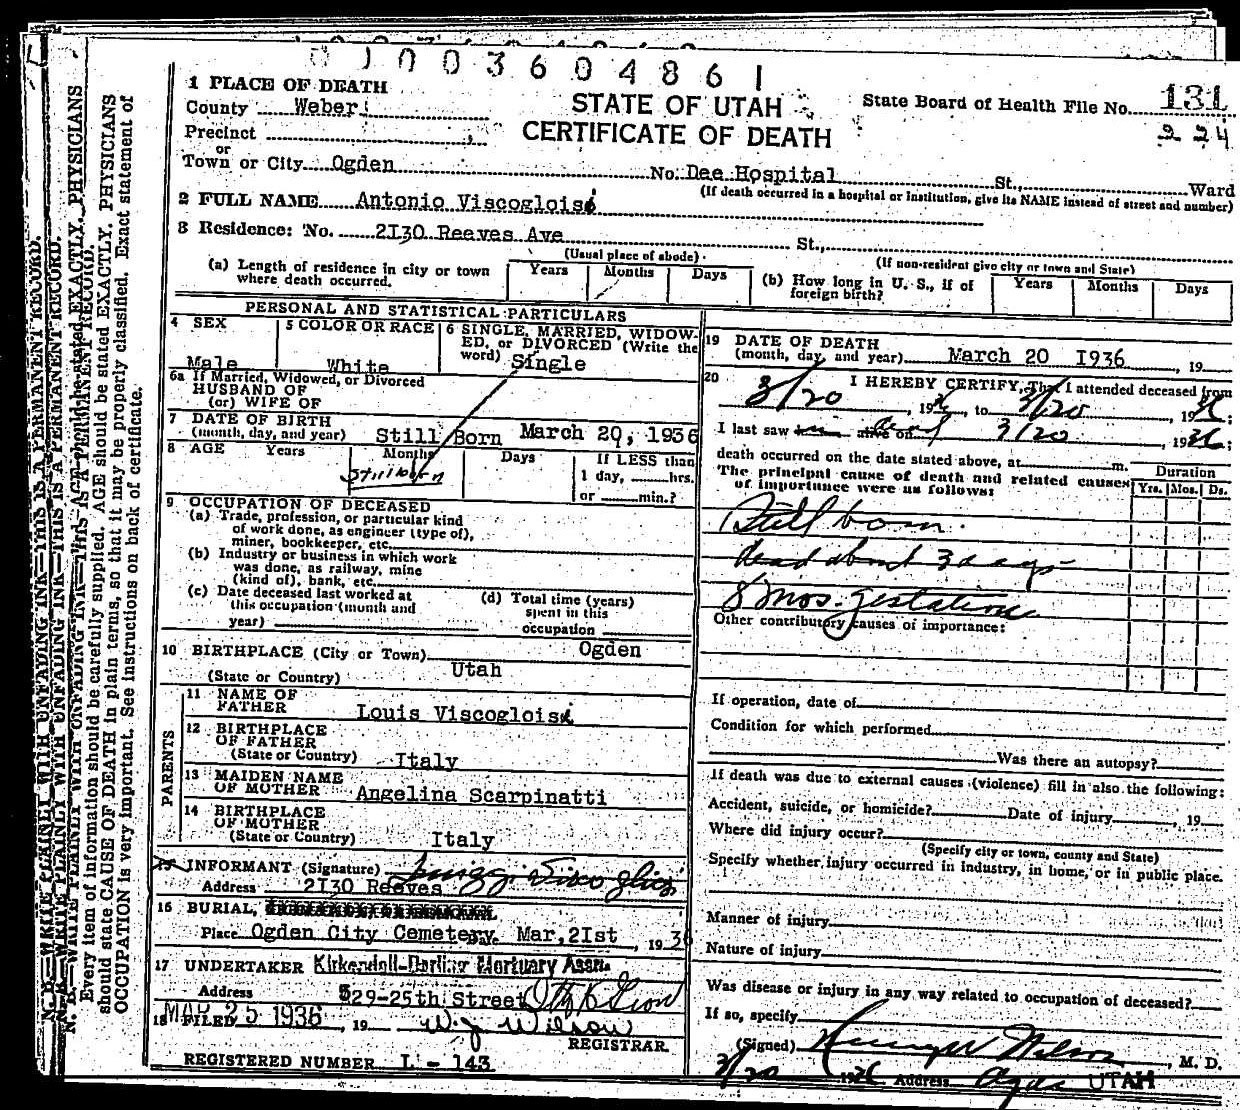 01003604861
1 PLACE OF DEATH
County Weber
STATE OF UTAH
CERTIFICATE OF DEATH
State Board of Health File No. 131
224
Precinct
or
Town or City Ogden No. Dee Hospital St., Ward
(If death occurred in a hospital or institution, give its NAME instead of street and number)
2 FULL NAME Antonio Viscogloisi
3 Residence: No. 2130 Reeves Ave St.,
(Usual place of abode)
(If non-resident give city or town and State)
(a) Length of residence in city or town where death occurred. Years Months Days
(b) How long in U. S., if of foreign birth? Years Months Days
PERSONAL AND STATISTICAL PARTICULARS
4 SEX
Male
5 COLOR OR RACE
White
6 SINGLE, MARRIED, WIDOW-
ED, or DIVORCED (Write the
word) Single
6a If Married, Widowed, or Divorced
HUSBAND OF
(or) WIFE OF
7 DATE OF BIRTH
(month, day, and year) Still Born March 20, 1936
8 AGE Years Months Days If LESS than
1 day, hrs.
or min.?
Stillborn
9 OCCUPATION OF DECEASED
(a) Trade, profession, or particular kind
of work done, as engineer (type of),
miner, bookkeeper, etc.
(b) Industry or business in which work
was done, as railway, mine
(kind of), bank, etc.
(c) Date deceased last worked at
this occupation (month and
year)
(d) Total time (years)
spent in this
occupation
10 BIRTHPLACE (City or Town) Ogden
(State or Country) Utah
PARENTS
11 NAME OF
FATHER Louis Viscogloisi
12 BIRTHPLACE
OF FATHER
(State or Country) Italy
13 MAIDEN NAME
OF MOTHER Angelina Scarpinatti
14 BIRTHPLACE
OF MOTHER
(State or Country) Italy
15 INFORMANT (Signature)
Address 2130 Reeves
16 BURIAL,
Place Ogden City Cemetery. Mar, 21st, 1936
17 UNDERTAKER Kirkendall-Darling Mortuary Assn.
Address 529-25th Street
MAR 25 1936
18 FILED , 19 W. J. Wilson
REGISTRAR.
REGISTERED NUMBER L - 143
19 DATE OF DEATH
(month, day, and year) March 20 1936, 19
20 I HEREBY CERTIFY, That I attended deceased from
3/20, 1936, to 3/20, 1936;
I last saw him alive on dead 3/20, 1936;
death occurred on the date stated above, at m.
The principal cause of death and related causes
of importance were as follows:
Duration
Yrs. Mos. Ds.
Still born.
dead about 3 days
8 mos. gestation
Other contributory causes of importance:
If operation, date of
Condition for which performed
Was there an autopsy?
If death was due to external causes (violence) fill in also the following:
Accident, suicide, or homicide? Date of injury , 19
Where did injury occur?
(Specify city or town, county and State)
Specify whether injury occurred in industry, in home, or in public place.
Manner of injury
Nature of injury
Was disease or injury in any way related to occupation of deceased?
If so, specify
(Signed) , M. D.
3/20 1936 Address UTAH
N. B.—WRITE PLAINLY WITH UNFADING INK—THIS IS A PERMANENT RECORD.
Every item of information should be carefully supplied. AGE should be stated EXACTLY, PHYSICIANS
should state CAUSE OF DEATH in plain terms, so that it may be properly classified. Exact statement of
OCCUPATION is very important. See instructions on back of certificate.